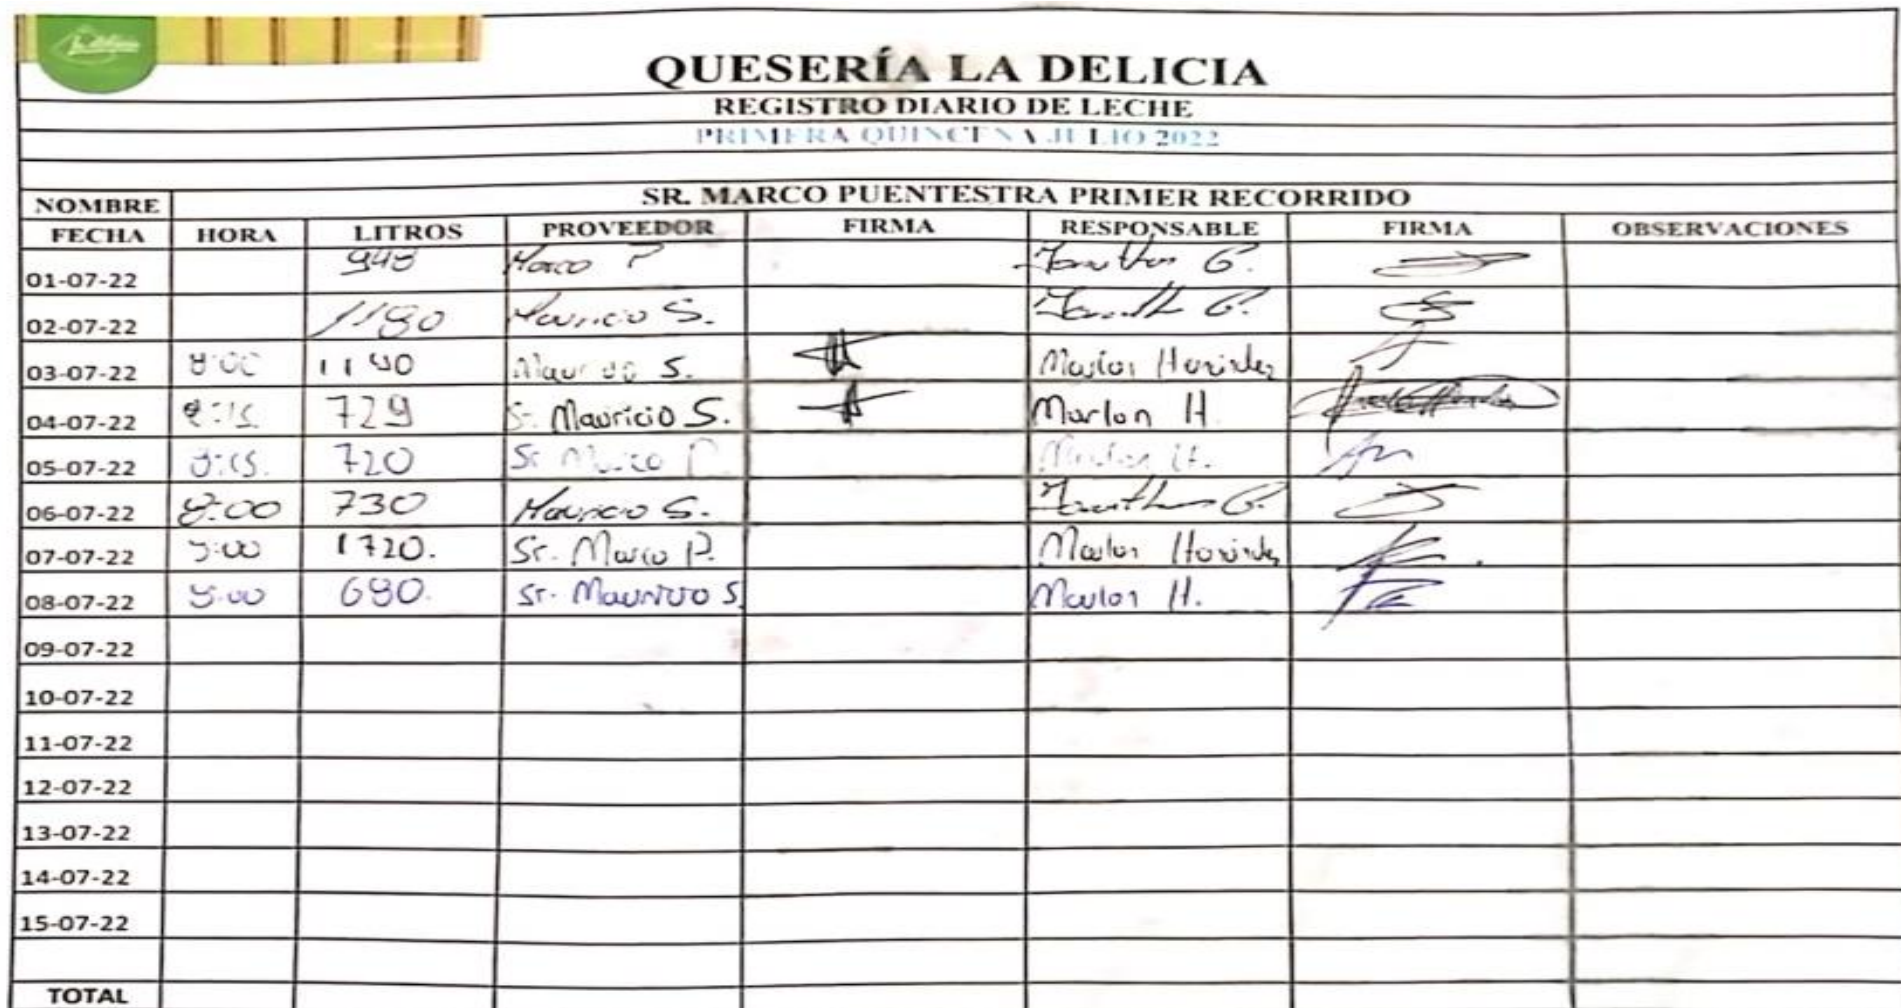 La delicia
QUESERÍA LA DELICIA
REGISTRO DIARIO DE LECHE
PRIMERA QUINCENA JULIO 2022
NOMBRE SR. MARCO PUENTESTRA PRIMER RECORRIDO
FECHA HORA LITROS PROVEEDOR FIRMA RESPONSABLE FIRMA OBSERVACIONES
01-07-22 Marco P G.
02-07-22 Mauricio S. G.
03-07-22 Mauricio S. Marlon
04-07-22 729 Sr. Mauricio S. Marlon H.
05-07-22 720 Sr Marco P. Marlon H.
06-07-22 8:00 730 Mauricio S. G.
07-07-22 1720. Sr. Marco P. Marlon
08-07-22 Sr. Mauricio S Marlon H.
09-07-22
10-07-22
11-07-22
12-07-22
13-07-22
14-07-22
15-07-22
TOTAL